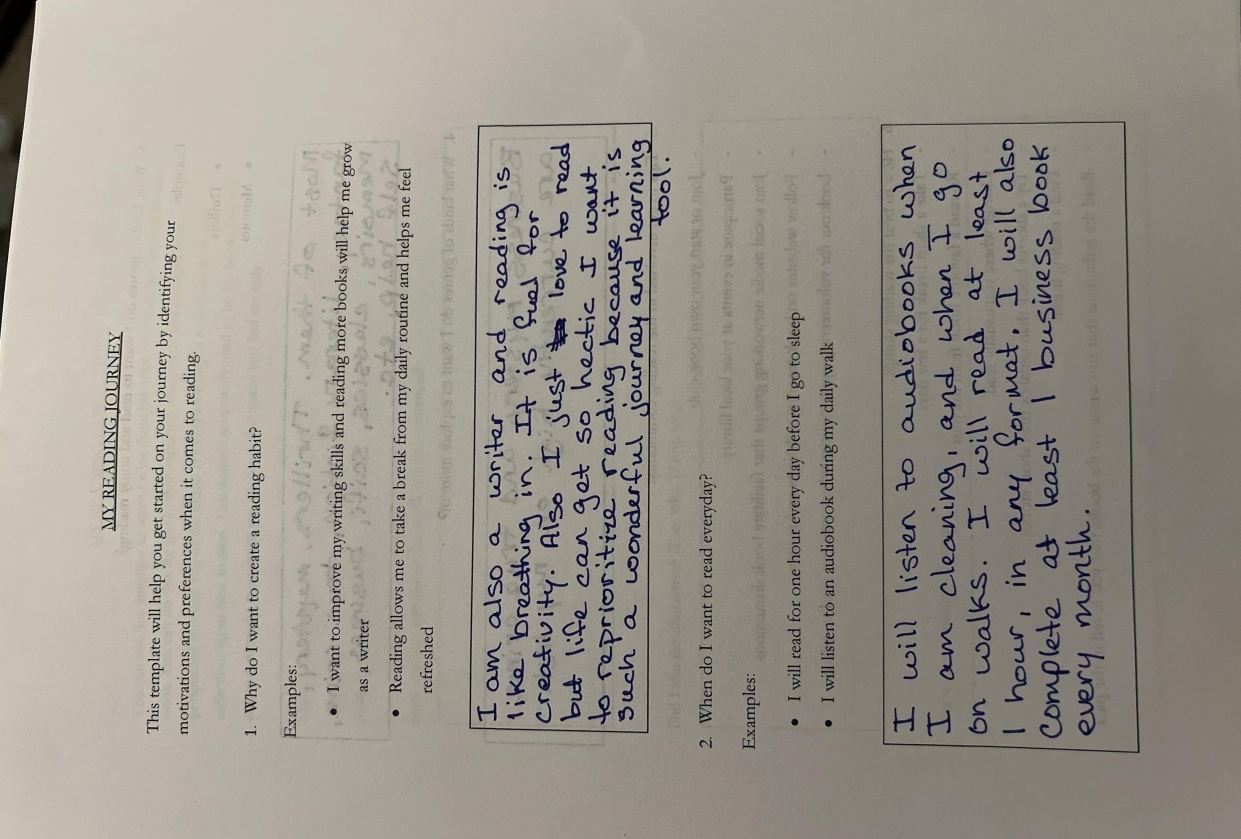 MY READING JOURNEY
This template will help you get started on your journey by identifying your
motivations and preferences when it comes to reading.
1. Why do I want to create a reading habit?
Examples:
• I want to improve my writing skills and reading more books will help me grow
as a writer
• Reading allows me to take a break from my daily routine and helps me feel
refreshed
I am also a writer and reading is
like breathing in. It is fuel for
creativity. Also I just love to read
but life can get so hectic I want
to reprioritize reading because it is
such a wonderful journey and learning
tool.
2. When do I want to read everyday?
Examples:
• I will read for one hour every day before I go to sleep
• I will listen to an audiobook during my daily walk
I will listen to audiobooks when
I am cleaning, and when I go
on walks. I will read at least
1 hour, in any format. I will also
complete at least 1 business book
every month.